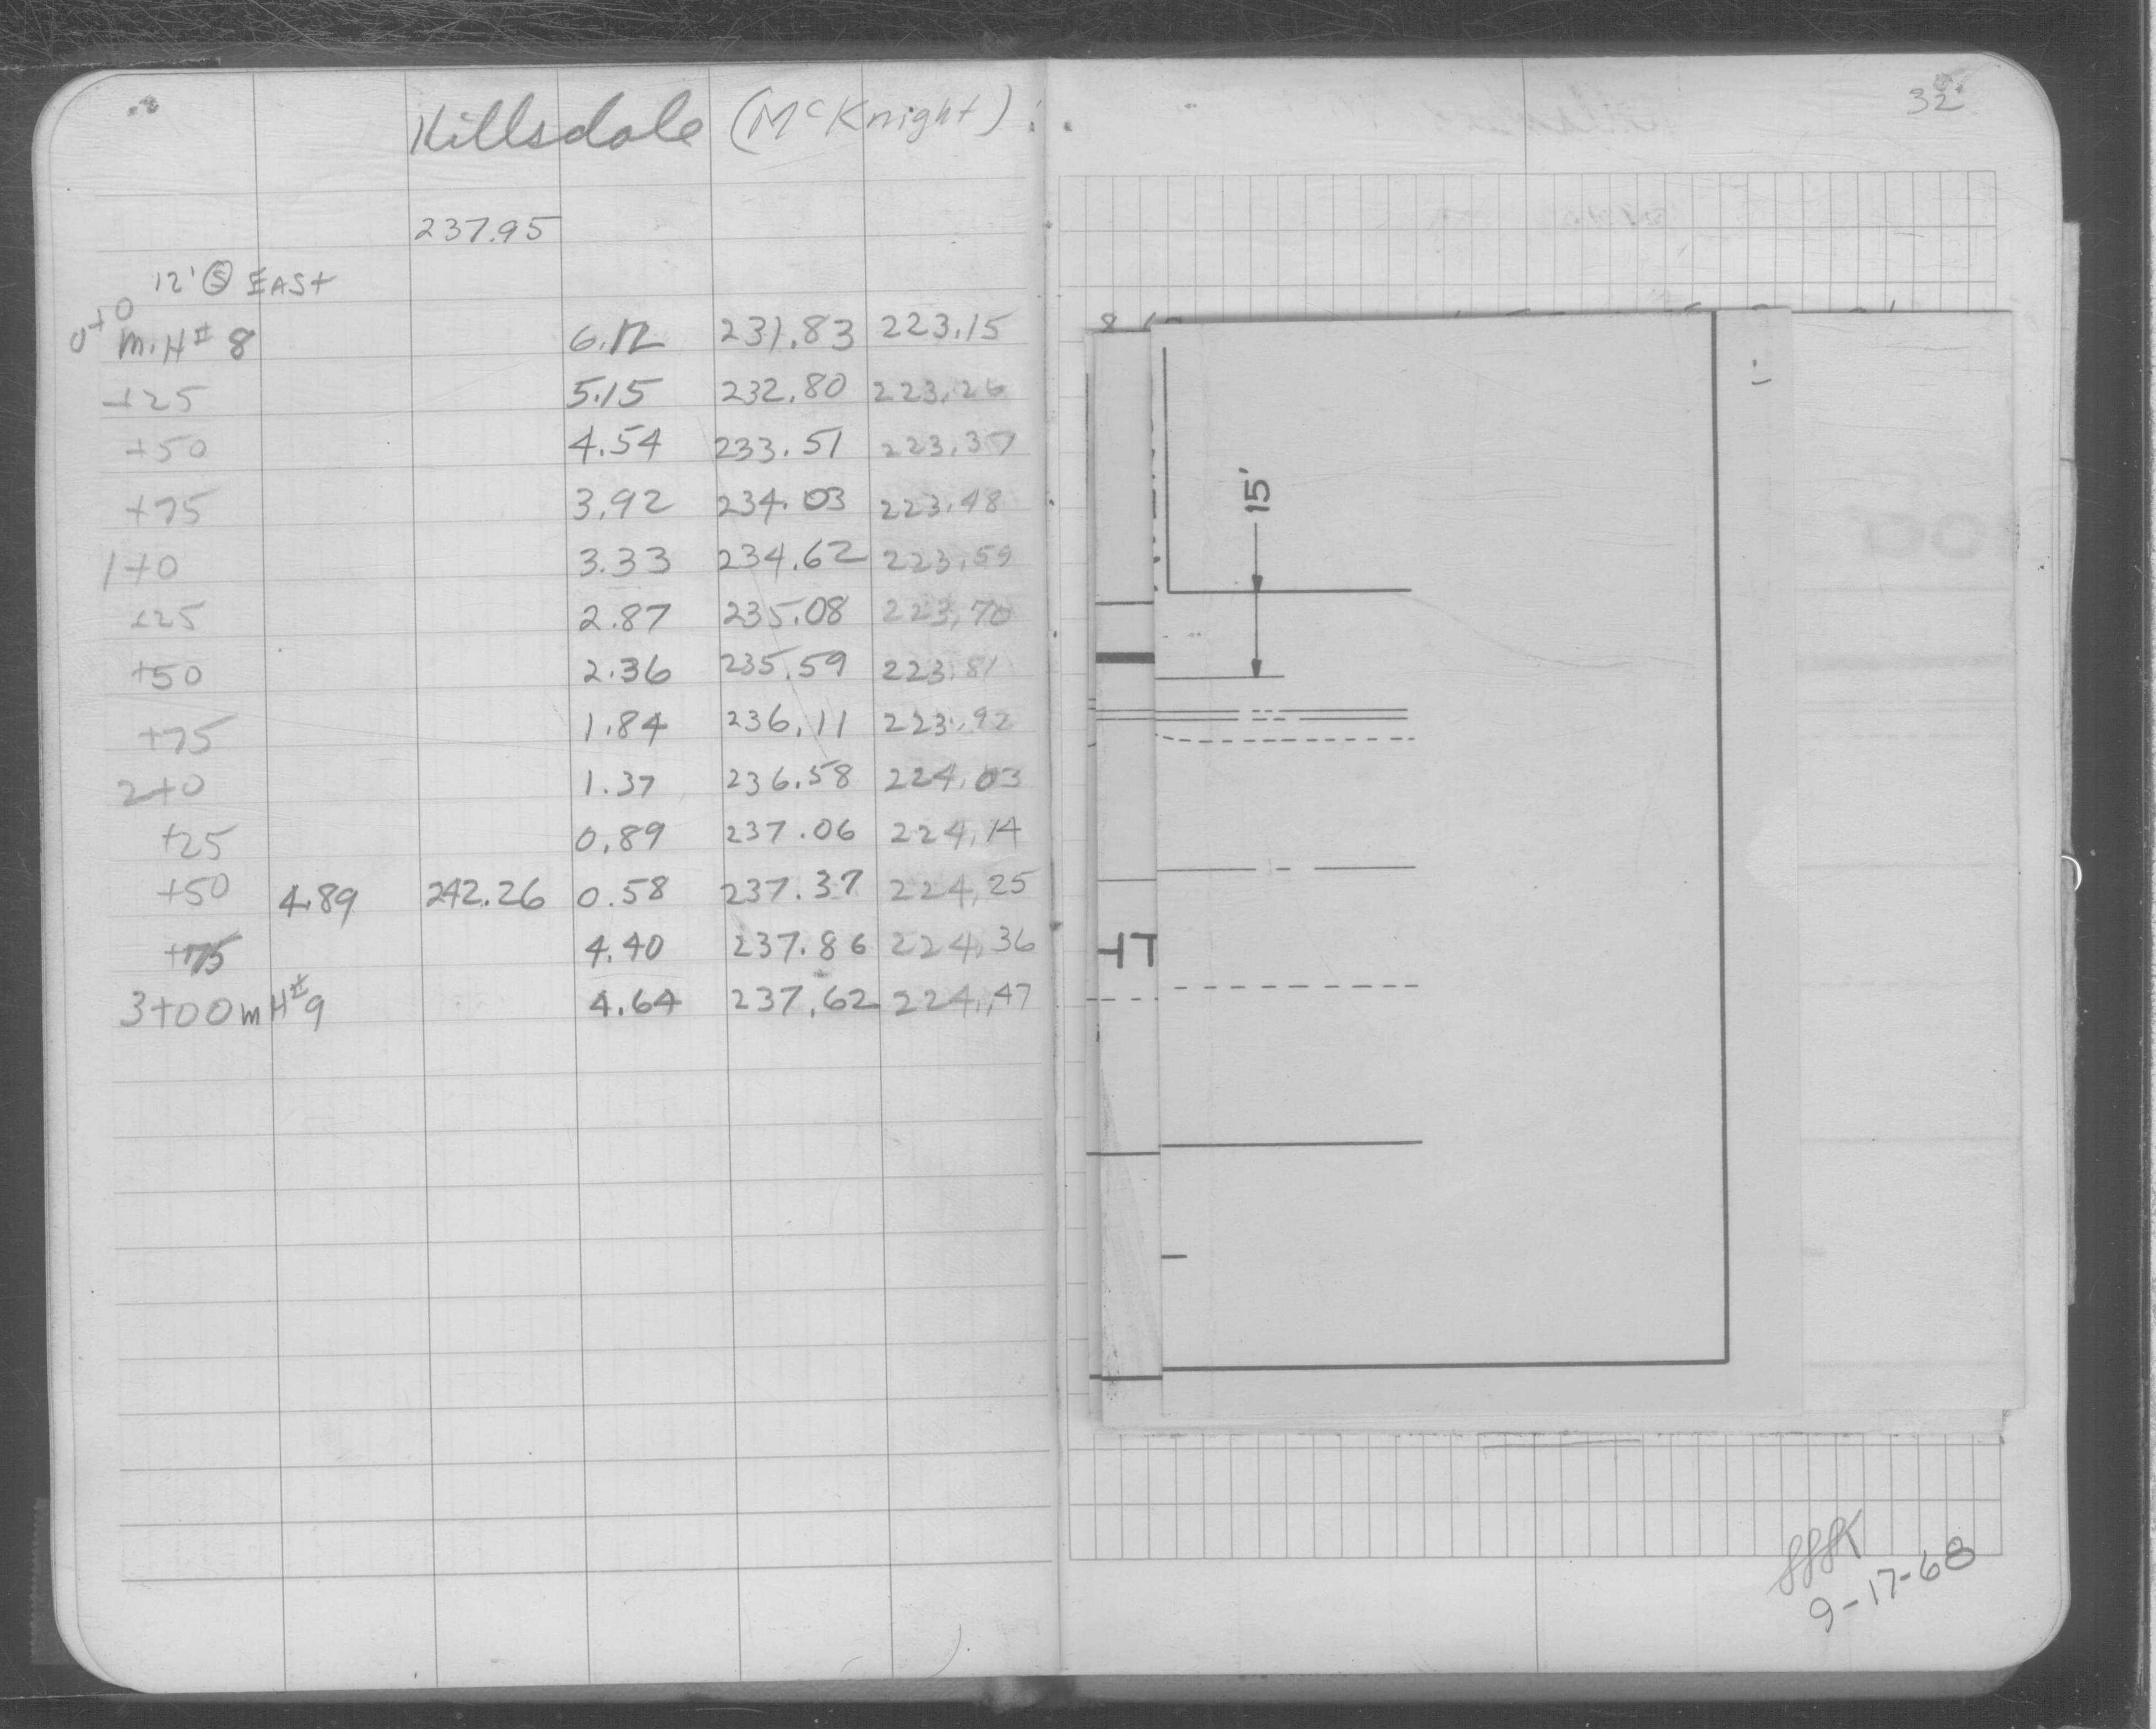 Hillsdale (McKnight)
32
237.95
12' Ⓢ EAST
0+0
M.H # 8 6.12 231.83 223.15
+25 5.15 232.80 223.26
+50 4.54 233.51 223.37
+75 3.92 234.03 223.48
1+0 3.33 234.62 223.59
+25 2.87 235.08 223.70
+50 2.36 235.59 223.81
+75 1.84 236.11 223.92
2+0 1.37 236.58 224.03
+25 0.89 237.06 224.14
+50 4.89 242.26 0.58 237.37 224.25
+75 4.40 237.86 224.36
3+00 mH# 9 4.64 237.62 224.47
15'
9-17-68